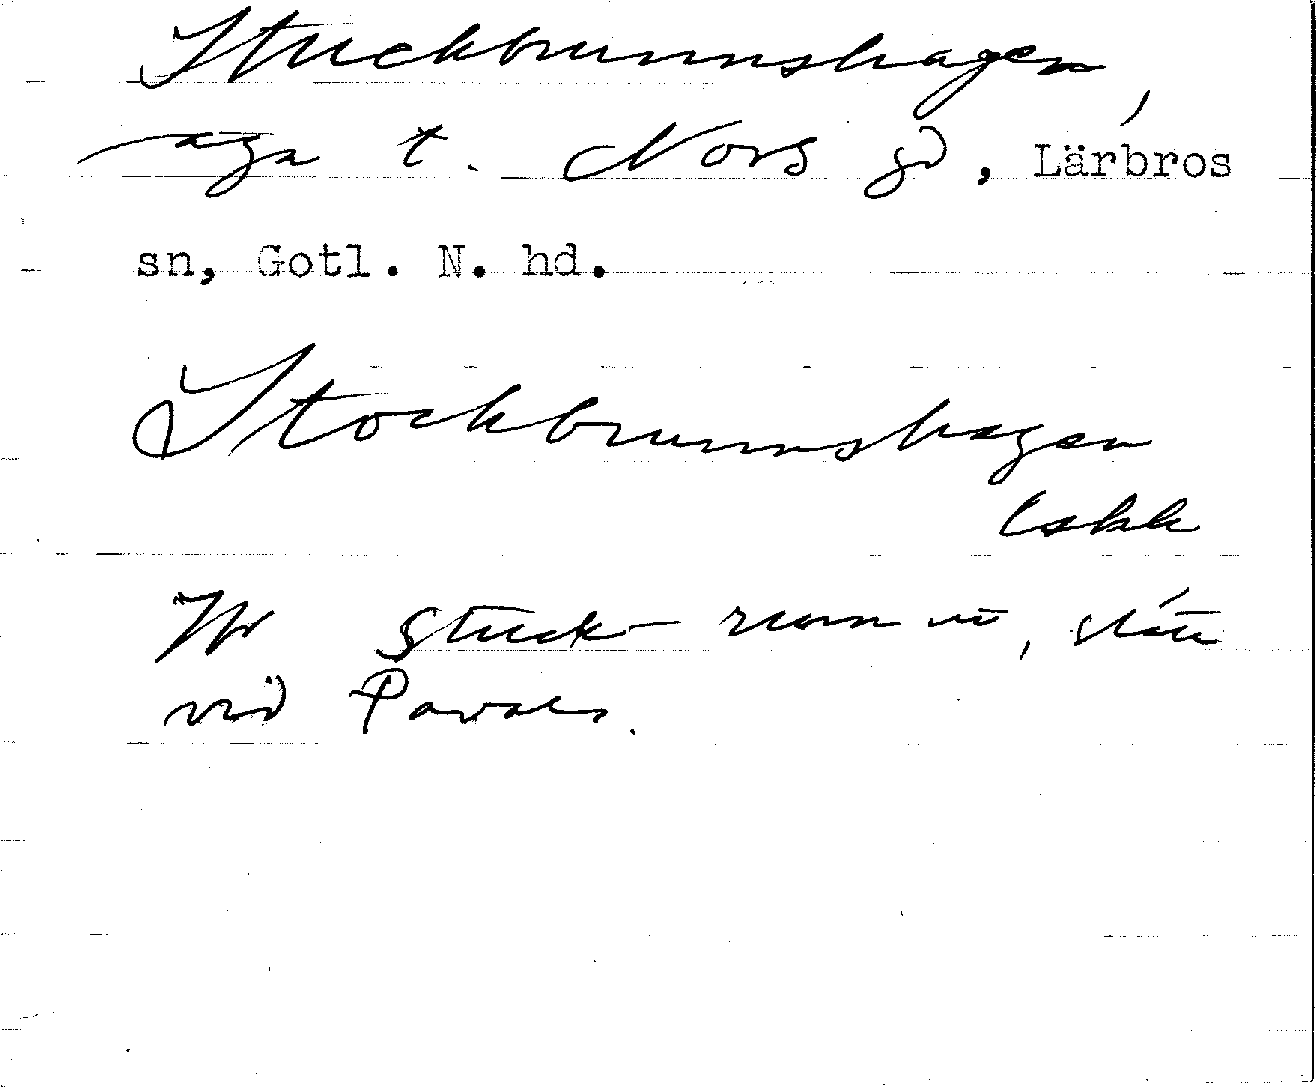 Stuckbrunnshagen,
äga t. Nors gd, Lärbros
sn, Gotl. N. hd.
Stockbrunnshagen
Iskk
Jfr Stuck- vid, slåtte
vid Pavals.